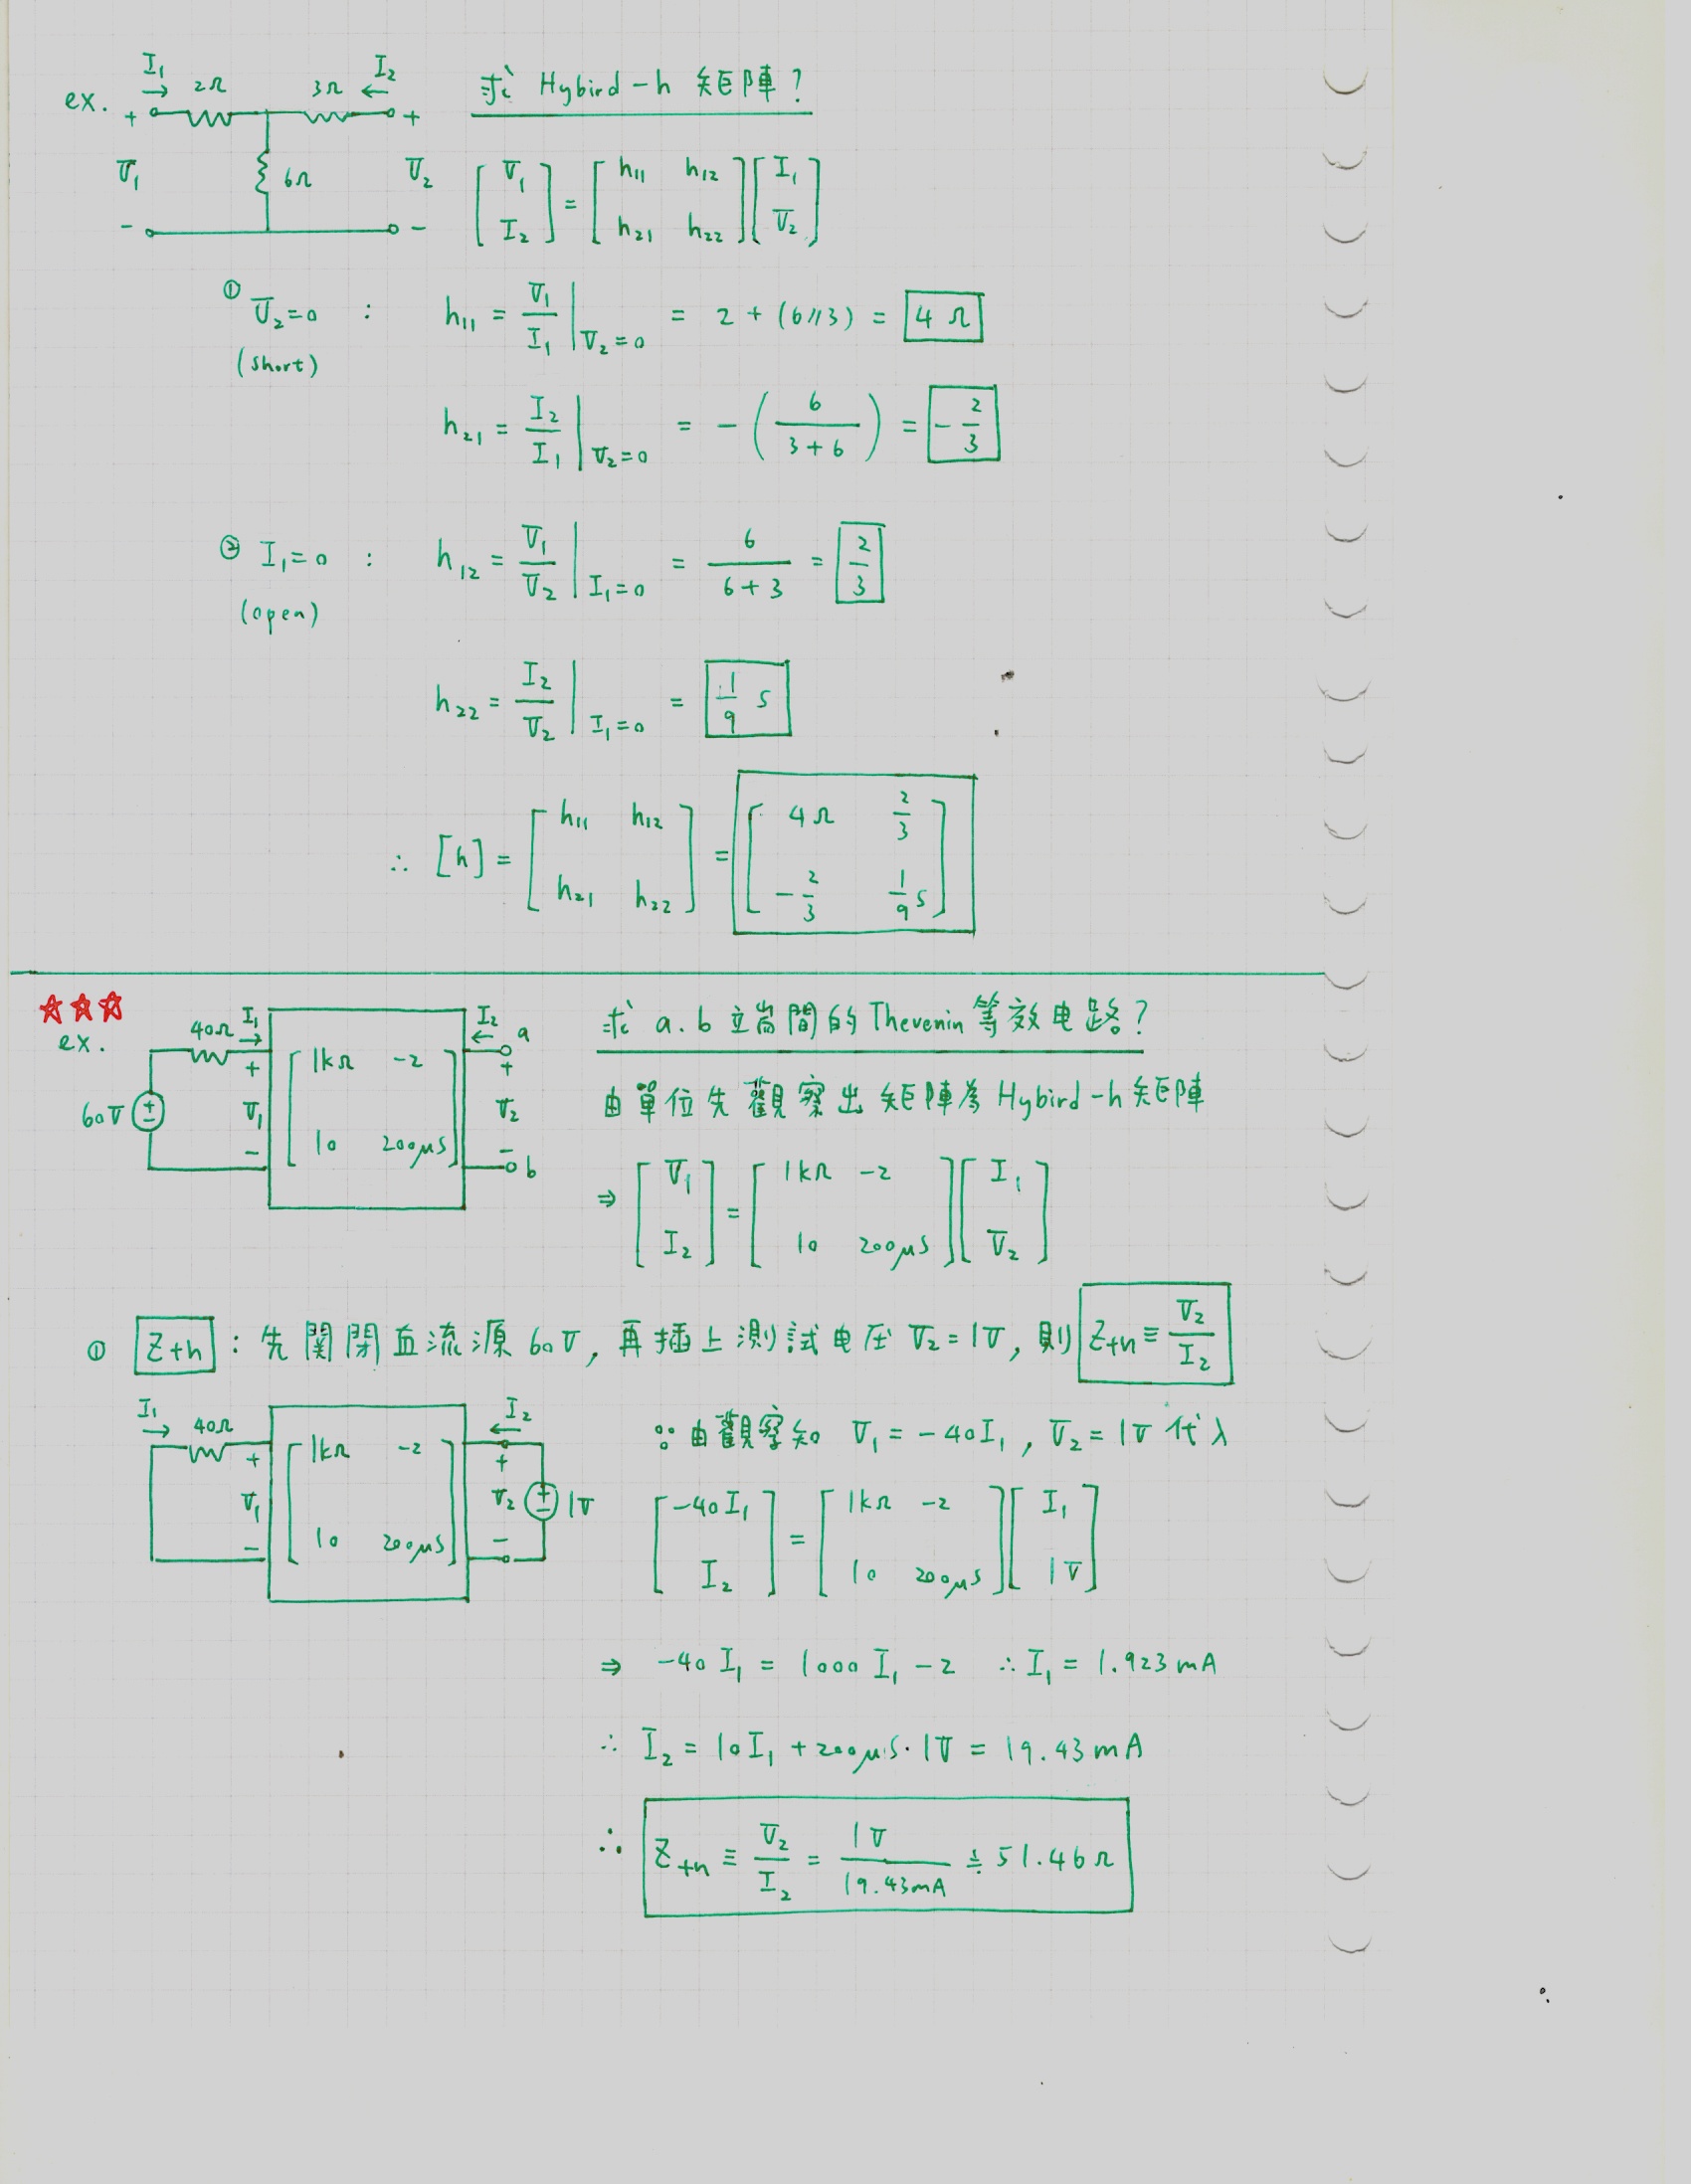 ex. I₁ → 2Ω 3Ω ← I₂ 求 Hybird-h 矩陣?
+ +
V₁ 6Ω V₂ [V₁ I₂] = [h₁₁ h₁₂ h₂₁ h₂₂][I₁ V₂]
- -
① V₂=0 : h₁₁ = V₁/I₁ |V₂=0 = 2 + (6//3) = 4 Ω
(short)
h₂₁ = I₂/I₁ |V₂=0 = -(6/(3+6)) = -2/3
② I₁=0 : h₁₂ = V₁/V₂ |I₁=0 = 6/(6+3) = 2/3
(open)
h₂₂ = I₂/V₂ |I₁=0 = 1/9 S
∴ [h] = [h₁₁ h₁₂ h₂₁ h₂₂] = [4Ω 2/3 -2/3 1/9 S]
ex. 40Ω I₁ → ← I₂ a 求 a.b 立端間的 Thevenin 等效电路?
60V + V₁ - [1kΩ -2 10 200μS] + V₂ - b
由單位先觀察出矩陣為 Hybird-h 矩陣
⇒ [V₁ I₂] = [1kΩ -2 10 200μS][I₁ V₂]
① Zth : 先関閉血流源 60V, 再插上測試电压 V₂=1V, 則 Zth ≡ V₂/I₂
I₁ → 40Ω + V₁ - [1kΩ -2 10 200μS] ← I₂ + V₂ - 1V
∵由觀察知 V₁ = -40I₁, V₂ = 1V 代入
[-40I₁ I₂] = [1kΩ -2 10 200μS][I₁ 1V]
⇒ -40 I₁ = 1000 I₁ - 2 ∴ I₁ = 1.923 mA
∴ I₂ = 10I₁ + 200μS · 1V = 19.43 mA
∴ Zth ≡ V₂/I₂ = 1V/19.43mA ≒ 51.46Ω